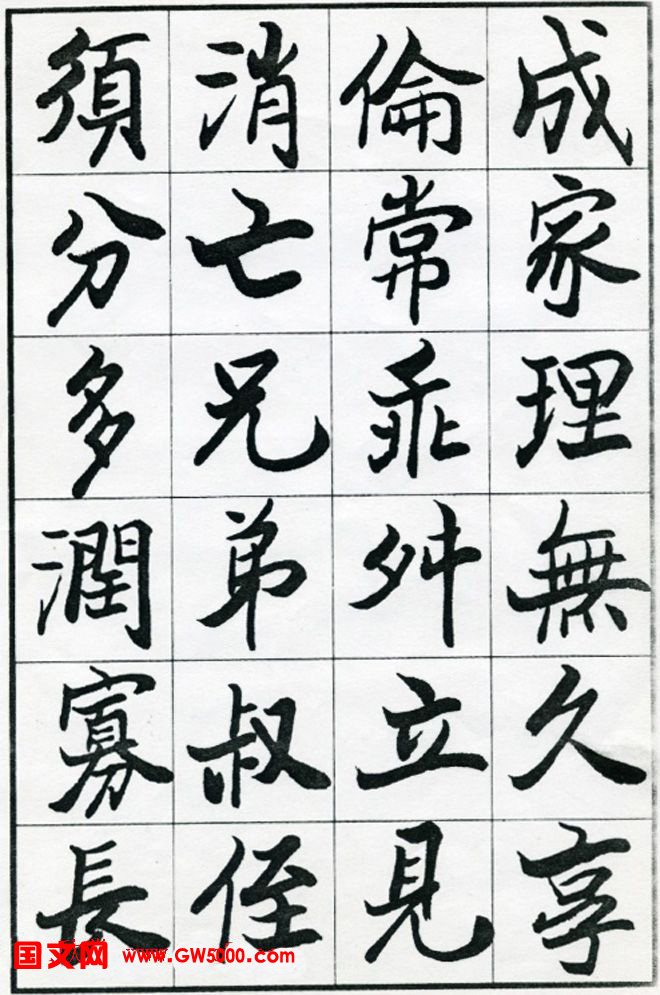 成家理無久享
倫常乖舛立見
消亡兄弟叔侄
須分多潤寡長
国文网 www.GW5000.com